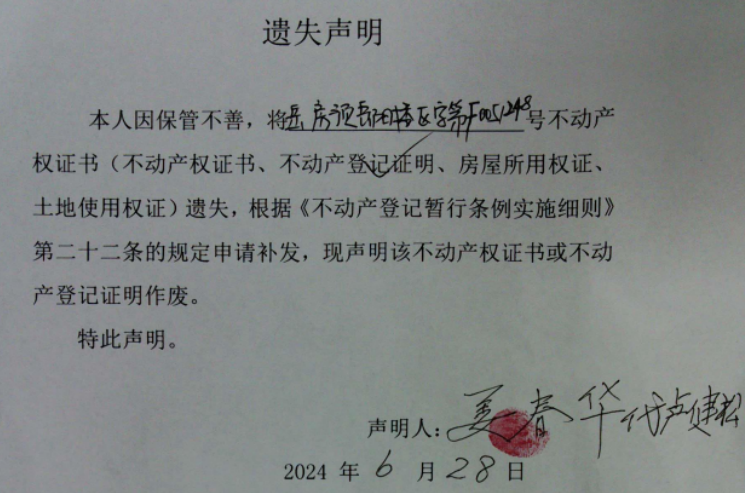 遗失声明
本人因保管不善，将岳房预岳阳楼区字第F0051248号不动产
权证书（不动产权证书、不动产登记证明、房屋所用权证、
土地使用权证）遗失，根据《不动产登记暂行条例实施细则》
第二十二条的规定申请补发，现声明该不动产权证书或不动
产登记证明作废。
特此声明。
声明人：姜春华代卢建松
2024 年 6 月 28 日